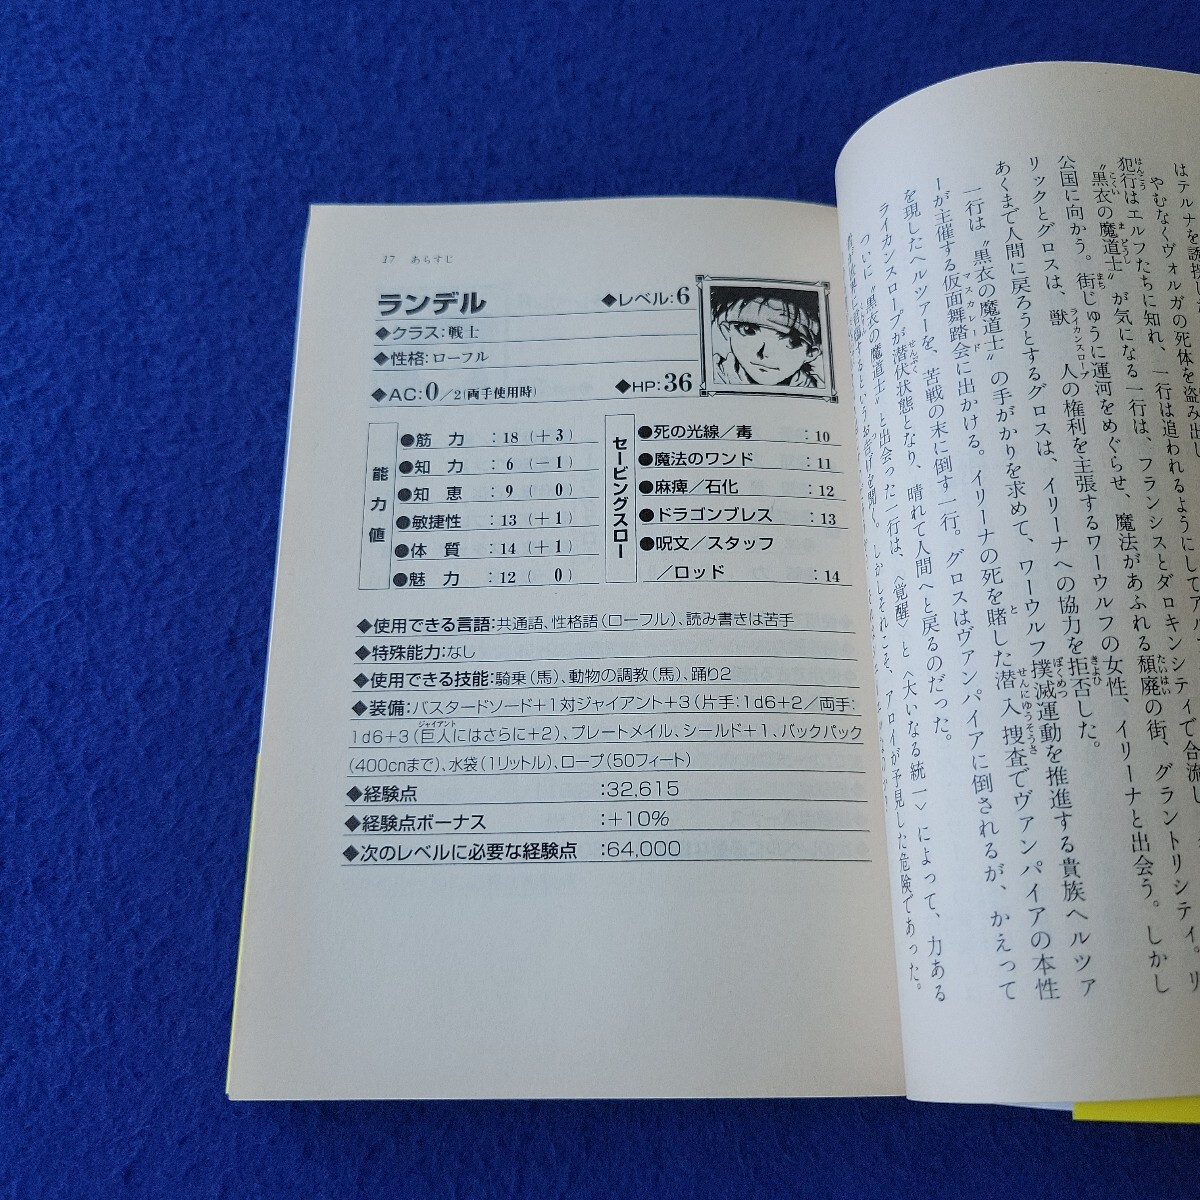 17 あらすじ
ランデル ◆レベル:6
◆クラス:戦士
◆性格:ローフル
◆AC:0/2(両手使用時) ◆HP:36
能力値
●筋力:18(+3)
●知力:6(−1)
●知恵:9(0)
●敏捷性:13(+1)
●体質:14(+1)
●魅力:12(0)
セービングスロー
●死の光線/毒:10
●魔法のワンド:11
●麻痺/石化:12
●ドラゴンブレス:13
●呪文/スタッフ
/ロッド:14
◆使用できる言語:共通語、性格語(ローフル)、読み書きは苦手
◆特殊能力:なし
◆使用できる技能:騎乗(馬)、動物の調教(馬)、踊り2
◆装備:バスタードソード+1対ジャイアント+3(片手:1d6+2/両手:
1d6+3(巨人にはさらに+2)、プレートメイル、シールド+1、バックパック
(400cnまで)、水袋(1リットル)、ロープ(50フィート)
◆経験点:32,615
◆経験点ボーナス:+10%
◆次のレベルに必要な経験点:64,000
はテルナを誘拐し
やむなくヴォルガの死体を盗み出し
犯行はエルフたちに知れ、一行は追われるようにしてアル
〝黒衣の魔道士〟が気になる一行は、フランシスとダロキンシティで合流し、
公国に向かう。街じゅうに運河をめぐらせ、魔法があふれる頽廃の街、グラントリシティ。リ
リックとグロスは、獣人の権利を主張するワーウルフの女性、イリーナと出会う。しかし
あくまで人間に戻ろうとするグロスは、イリーナへの協力を拒否した。
一行は〝黒衣の魔道士〟の手がかりを求めて、ワーウルフ撲滅運動を推進する貴族ヘルツァ
ーが主催する仮面舞踏会に出かける。イリーナの死を賭した潜入捜査でヴァンパイアの本性
を現したヘルツァーを、苦戦の末に倒す一行。グロスはヴァンパイアに倒されるが、かえって
ライカンスロープが潜伏状態となり、晴れて人間へと戻るのだった。
ついに〝黒衣の魔道士〟と出会った一行は、〈覚醒〉と〈大いなる統一〉によって、力ある
しかしそれこそ、アロイが予見した危険であった。